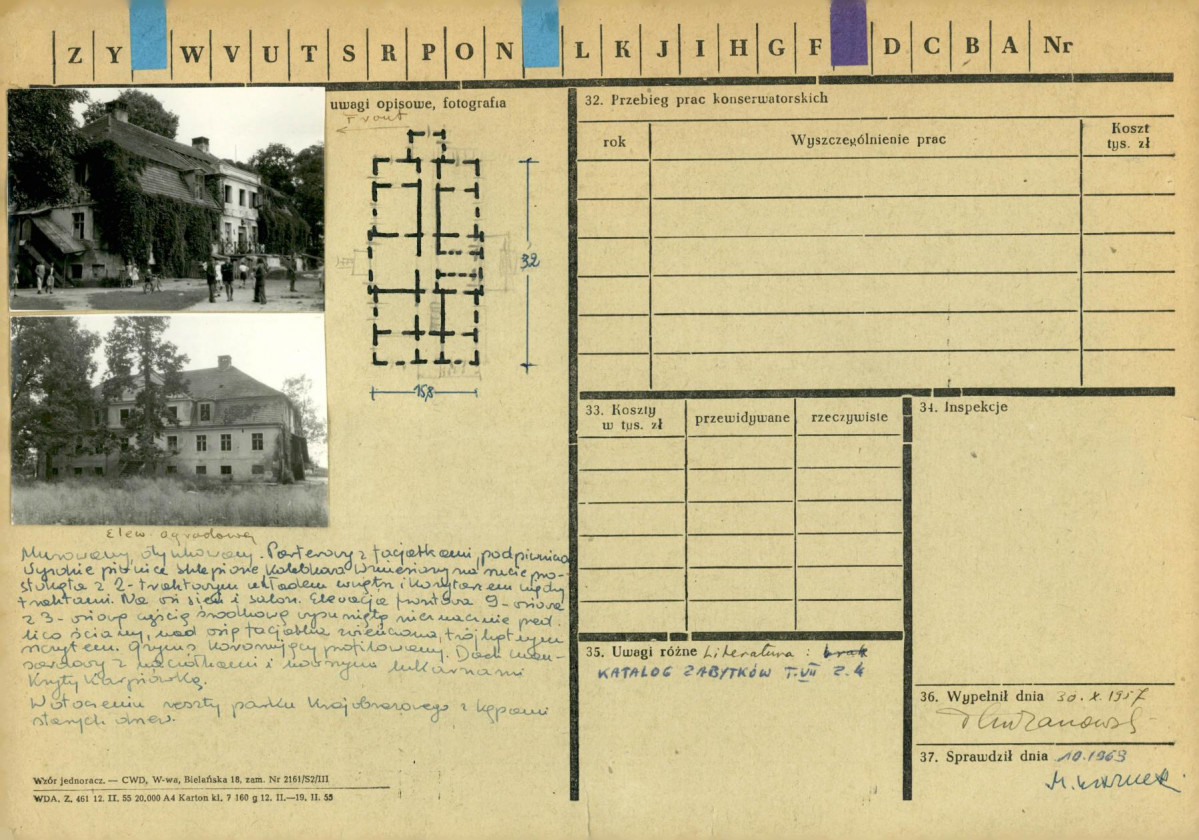 Z Y W V U T S R P O N L K J I H G F D C B A Nr
uwagi opisowe, fotografia
Front
32
15,8
Elew. ogrodowa
Murowany, otynkowany. Parterowy z facjatkami, podpiwnicz.
Wysokie piwnice sklepione kolebkowo. Wzniesiony na rzucie pro-
stokąta z 2-traktowym układem wnętrz i korytarzem między
traktami. Na osi sień i salon. Elewacja frontowa 9-osiowa
z 3-osiową częścią środkową wysuniętą nieznacznie przed
lico ściany, nad nią facjatka zwieńczona trójkątnym
szczytem. Gzyms koronujący profilowany. Dach man-
sardowy z naczółkami i lukarnami
Kryty karpiówką.
W otoczeniu resztki parku krajobrazowego z kępami
starych drzew.
Wzór jednoracz. — CWD, W-wa, Bielańska 18, zam. Nr 2161/S2/III
WDA, Z, 461 12. II. 55 20.000 A4 Karton kl. 7 160 g 12. II.—19. II. 55
32. Przebieg prac konserwatorskich
rok
Wyszczególnienie prac
Koszt
tys. zł
33. Koszty
w tys. zł
przewidywane
rzeczywiste
34. Inspekcje
35. Uwagi różne Literatura: brak
KATALOG ZABYTKÓW T. VII Z. 4
36. Wypełnił dnia 30.X.1957
37. Sprawdził dnia 10.1969